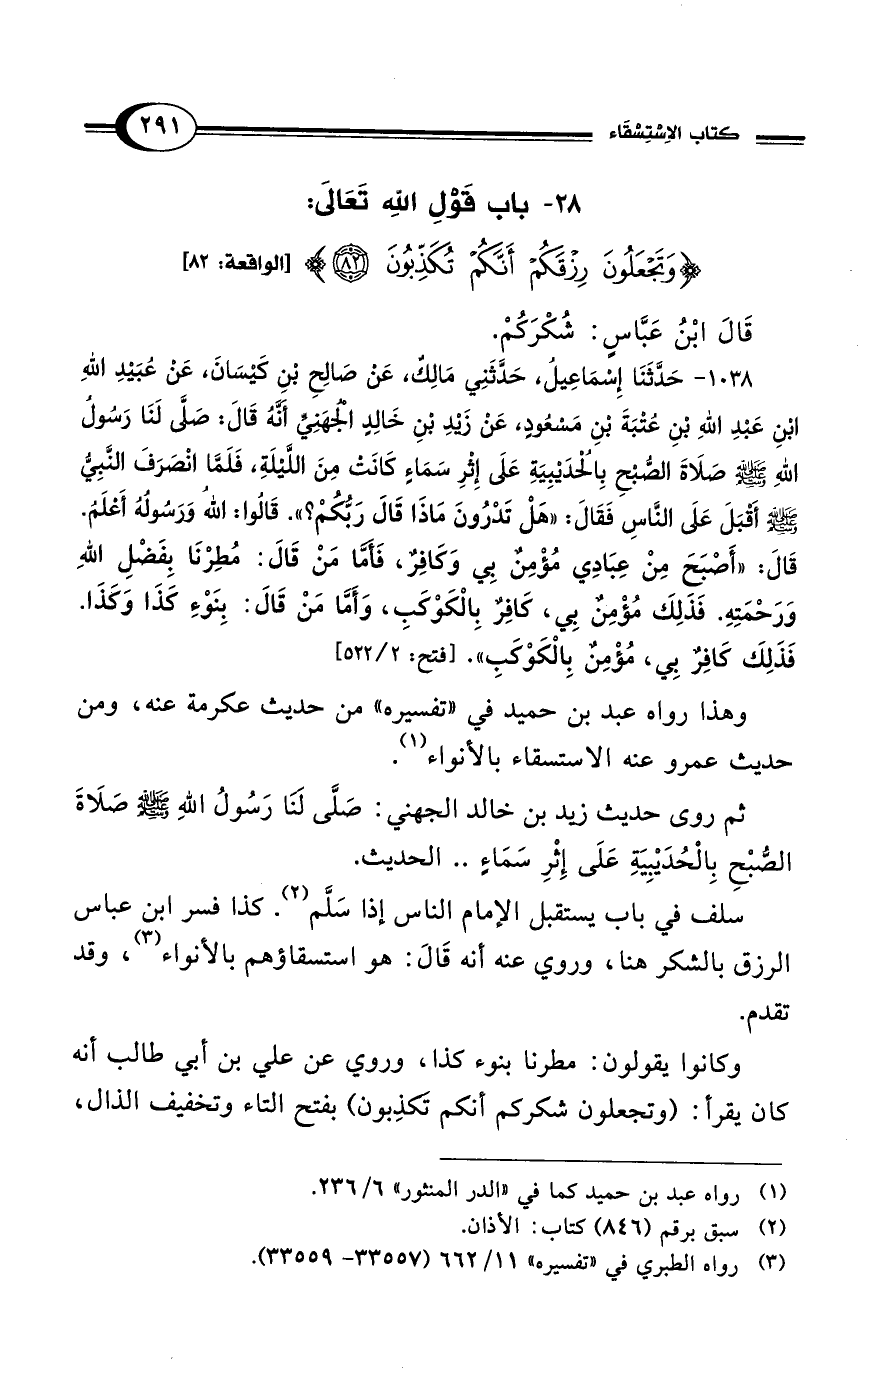 كتاب الاِسْتِسْقَاء ٢٩١
٢٨- باب قَوْلِ اللهِ تَعَالَى:
﴿وَتَجْعَلُونَ رِزْقَكُمْ أَنَّكُمْ تُكَذِّبُونَ ٨٢﴾ [الواقعة: ٨٢]
قَالَ ابْنُ عَبَّاسٍ: شُكْرَكُمْ.
١٠٣٨- حَدَّثَنَا إِسْمَاعِيلُ، حَدَّثَنِي مَالِكٌ، عَنْ صَالِحِ بْنِ كَيْسَانَ، عَنْ عُبَيْدِ اللهِ
ابْنِ عَبْدِ اللهِ بْنِ عُتْبَةَ بْنِ مَسْعُودٍ، عَنْ زَيْدِ بْنِ خَالِدٍ الْجُهَنِيِّ أَنَّهُ قَالَ: صَلَّى لَنَا رَسُولُ
اللهِ ﷺ صَلَاةَ الصُّبْحِ بِالْحُدَيْبِيَةِ عَلَى إِثْرِ سَمَاءٍ كَانَتْ مِنَ اللَّيْلَةِ، فَلَمَّا انْصَرَفَ النَّبِيُّ
ﷺ أَقْبَلَ عَلَى النَّاسِ فَقَالَ: «هَلْ تَدْرُونَ مَاذَا قَالَ رَبُّكُمْ؟». قَالُوا: اللهُ وَرَسُولُهُ أَعْلَمُ.
قَالَ: «أَصْبَحَ مِنْ عِبَادِي مُؤْمِنٌ بِي وَكَافِرٌ، فَأَمَّا مَنْ قَالَ: مُطِرْنَا بِفَضْلِ اللهِ
وَرَحْمَتِهِ. فَذَلِكَ مُؤْمِنٌ بِي، كَافِرٌ بِالْكَوْكَبِ، وَأَمَّا مَنْ قَالَ: بِنَوْءِ كَذَا وَكَذَا.
فَذَلِكَ كَافِرٌ بِي، مُؤْمِنٌ بِالْكَوْكَبِ». [فتح: ٥٢٢/٢]
وهذا رواه عبد بن حميد في «تفسيره» من حديث عكرمة عنه، ومن
حديث عمرو عنه الاستسقاء بالأنواء(١).
ثم روى حديث زيد بن خالد الجهني: صَلَّى لَنَا رَسُولُ اللهِ ﷺ صَلَاةَ
الصُّبْحِ بِالْحُدَيْبِيَةِ عَلَى إِثْرِ سَمَاءٍ .. الحديث.
سلف في باب يستقبل الإمام الناس إذا سَلَّم(٢). كذا فسر ابن عباس
الرزق بالشكر هنا، وروي عنه أنه قَالَ: هو استسقاؤهم بالأنواء(٣)، وقد
تقدم.
وكانوا يقولون: مطرنا بنوء كذا، وروي عن علي بن أبي طالب أنه
كان يقرأ: (وتجعلون شكركم أنكم تَكذِبون) بفتح التاء وتخفيف الذال،
(١) رواه عبد بن حميد كما في «الدر المنثور» ٢٣٦/٦.
(٢) سبق برقم (٨٤٦) كتاب: الأذان.
(٣) رواه الطبري في «تفسيره» ٦٦٢/١١ (٣٣٥٥٧- ٣٣٥٥٩).